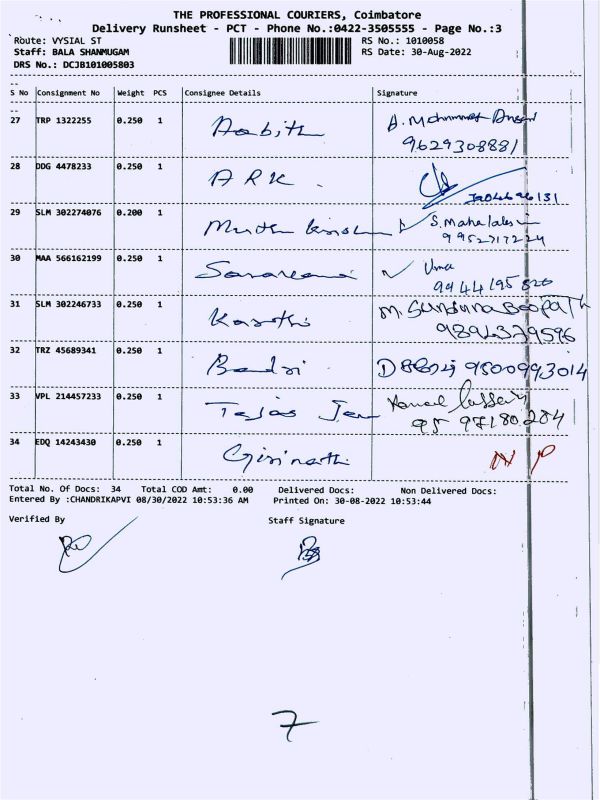 THE PROFESSIONAL COURIERS, Coimbatore
Delivery Runsheet - PCT - Phone No.:0422-3505555 - Page No.:3
Route: VYSIAL ST RS No.: 1010058
Staff: BALA SHANMUGAM RS Date: 30-Aug-2022
DRS No.: DCJB101005803
S No Consignment No Weight PCS Consignee Details Signature
27 TRP 1322255 0.250 1 Aabith
9629308881
28 DDG 4478233 0.250 1 ARK
29 SLM 302274076 0.200 1 S. Mahalaksmi
9952717224
30 MAA 566162199 0.250 1 Saravana Uma
9944195820
31 SLM 302246733 0.250 1
9894379596
32 TRZ 45689341 0.250 1 Badri 9500993014
33 VPL 214457233 0.250 1 Tejas
95 97180284
34 EDQ 14243430 0.250 1 Girinath NP
Total No. Of Docs: 34 Total COD Amt: 0.00 Delivered Docs: Non Delivered Docs:
Entered By :CHANDRIKAPVI 08/30/2022 10:53:36 AM Printed On: 30-08-2022 10:53:44
Verified By Staff Signature
7